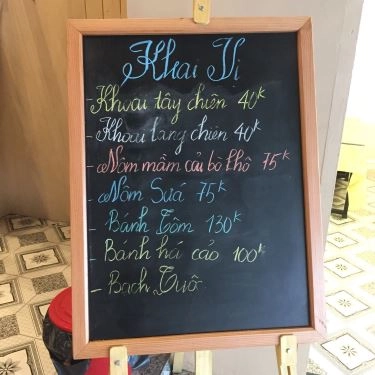 Khai Vị
- Khoai tây chiên 40k
- Khoai lang chiên 40k
- Nộm mầm cải bò khô 75k
- Nộm Sứa 75k
- Bánh Tôm 130k
- Bánh há cảo 100k
- Bạch Tuộc